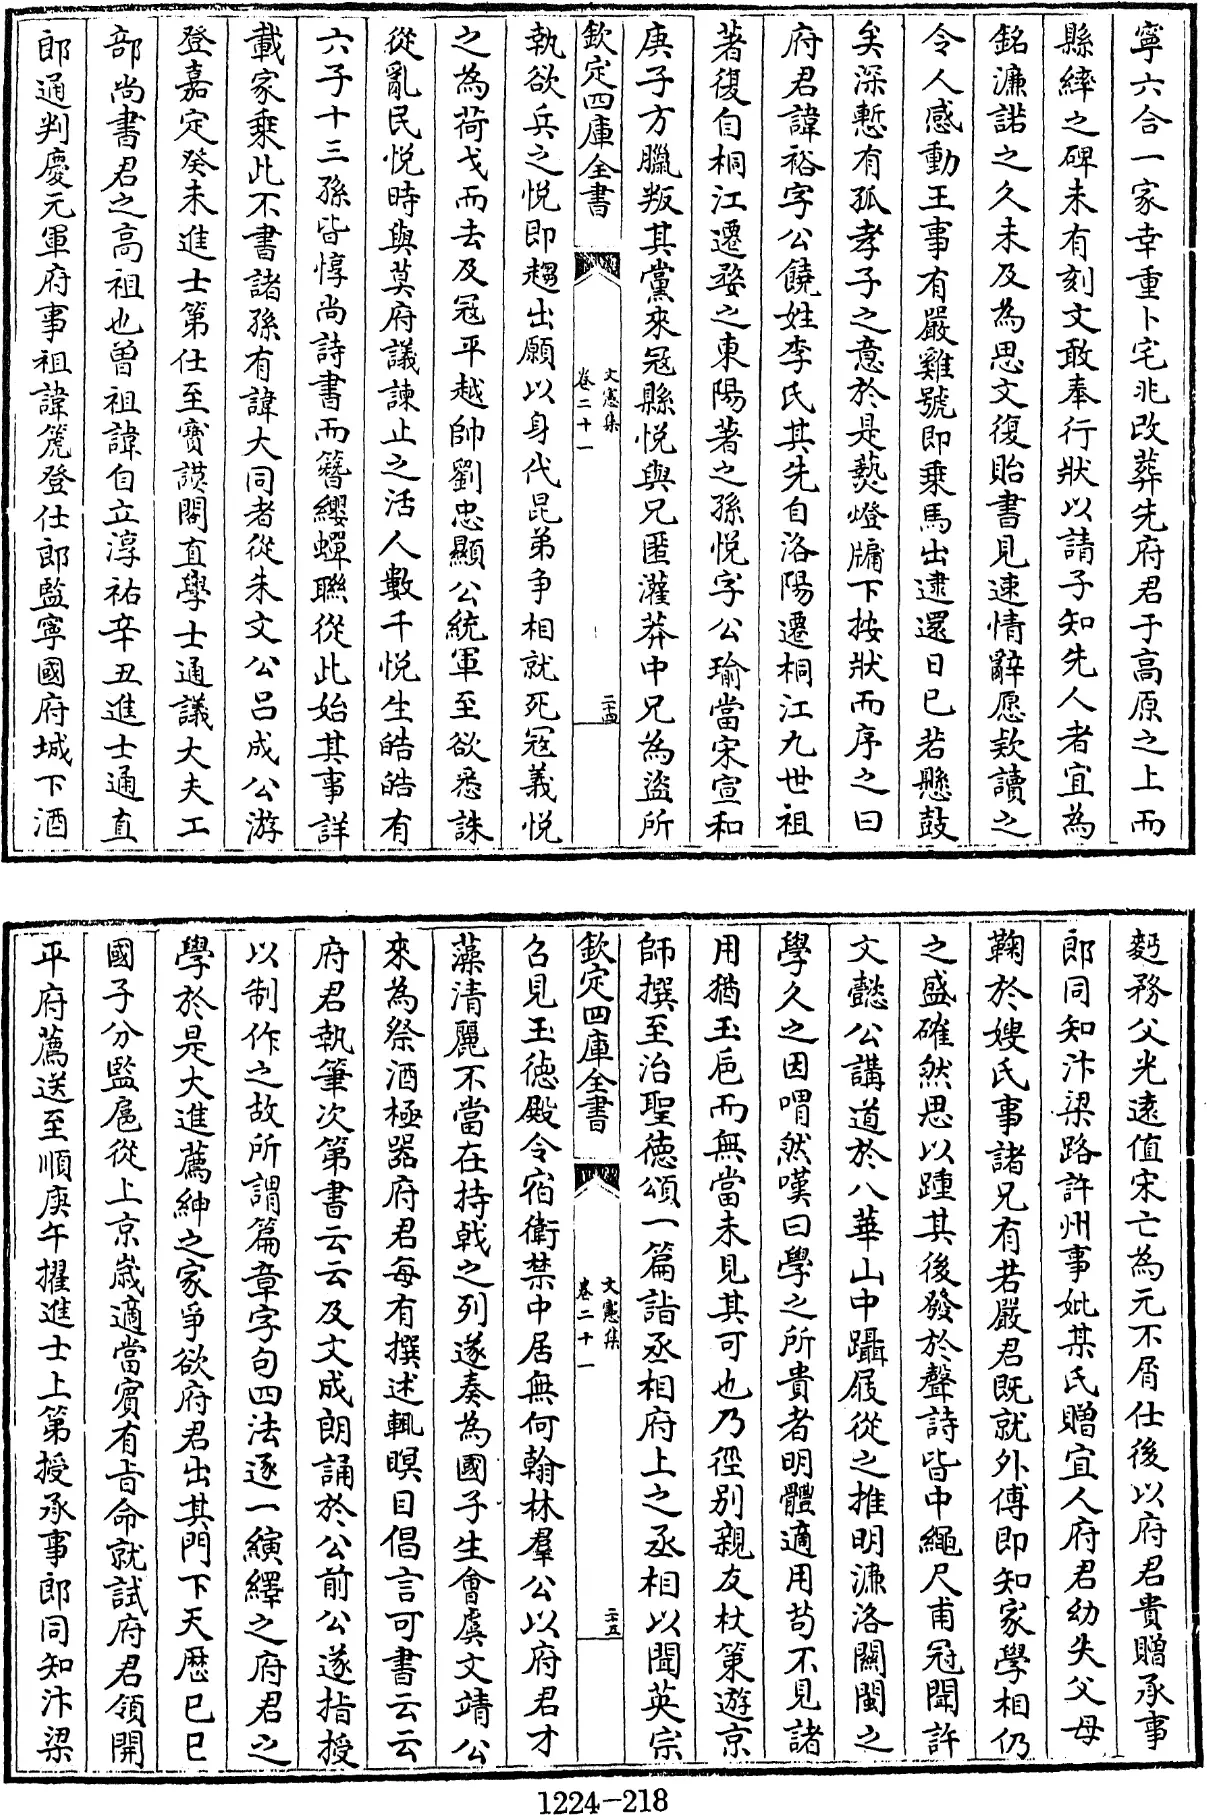 寧六合一家幸重卜宅兆改葬先府君于高原之上而
縣繂之碑未有刻文敢奉行狀以請子知先人者宜為
銘濂諾之久未及為思文復貽書見速情辭愿欵讀之
令人感動王事有嚴雞號即乗馬出逮還日已若懸鼓
矣深慙有孤孝子之意於是爇燈牖下按狀而序之曰
府君諱裕字公饒姓李氏其先自洛陽遷桐江九世祖
著復自桐江遷婺之東陽著之孫悦字公瑜當宋宣和
庚子方臘叛其黨來冦縣悦與兄匿灌莽中兄為盜所
欽定四庫全書
文憲集
卷二十一
二十四
執欲兵之悦即趨出願以身代昆弟争相就死冦義悦
之為荷戈而去及冦平越帥劉忠顯公統軍至欲悉誅
從亂民悦時與莫府議諫止之活人數千悦生皓皓有
六子十三孫皆惇尚詩書而簪纓蟬聯從此始其事詳
載家乗此不書諸孫有諱大同者從朱文公呂成公游
登嘉定癸未進士第仕至寶謨閣直學士通議大夫工
部尚書君之高祖也曽祖諱自立淳祐辛丑進士通直
郎通判慶元軍府事祖諱箎登仕郎監寧國府城下酒
麹務父光逺值宋亡為元不屑仕後以府君貴贈承事
郎同知汴梁路許州事妣某氏贈宜人府君幼失父母
鞠於嫂氏事諸兄有若嚴君既就外傅即知家學相仍
之盛確然思以踵其後發於聲詩皆中繩尺甫冠聞許
文懿公講道於八華山中躡屐從之推明濂洛關閩之
學久之因喟然嘆曰學之所貴者明體適用茍不見諸
用猶玉巵而無當未見其可也乃徑别親友杖策遊京
師撰至治聖徳頌一篇詣丞相府上之丞相以聞英宗
欽定四庫全書
文憲集
卷二十一
二十五
召見玉徳殿令宿衛禁中居無何翰林羣公以府君才
藻清麗不當在持戟之列遂奏為國子生會虞文靖公
來為祭酒極器府君每有撰述輒瞑目倡言可書云云
府君執筆次第書云云及文成朗誦於公前公遂指授
以制作之故所謂篇章字句四法逐一縯繹之府君之
學於是大進薦紳之家爭欲府君出其門下天厯已巳
國子分監扈從上京嵗適當賔有㫖命就試府君領開
平府薦送至順庚午擢進士上第授承事郎同知汴梁
1224-218